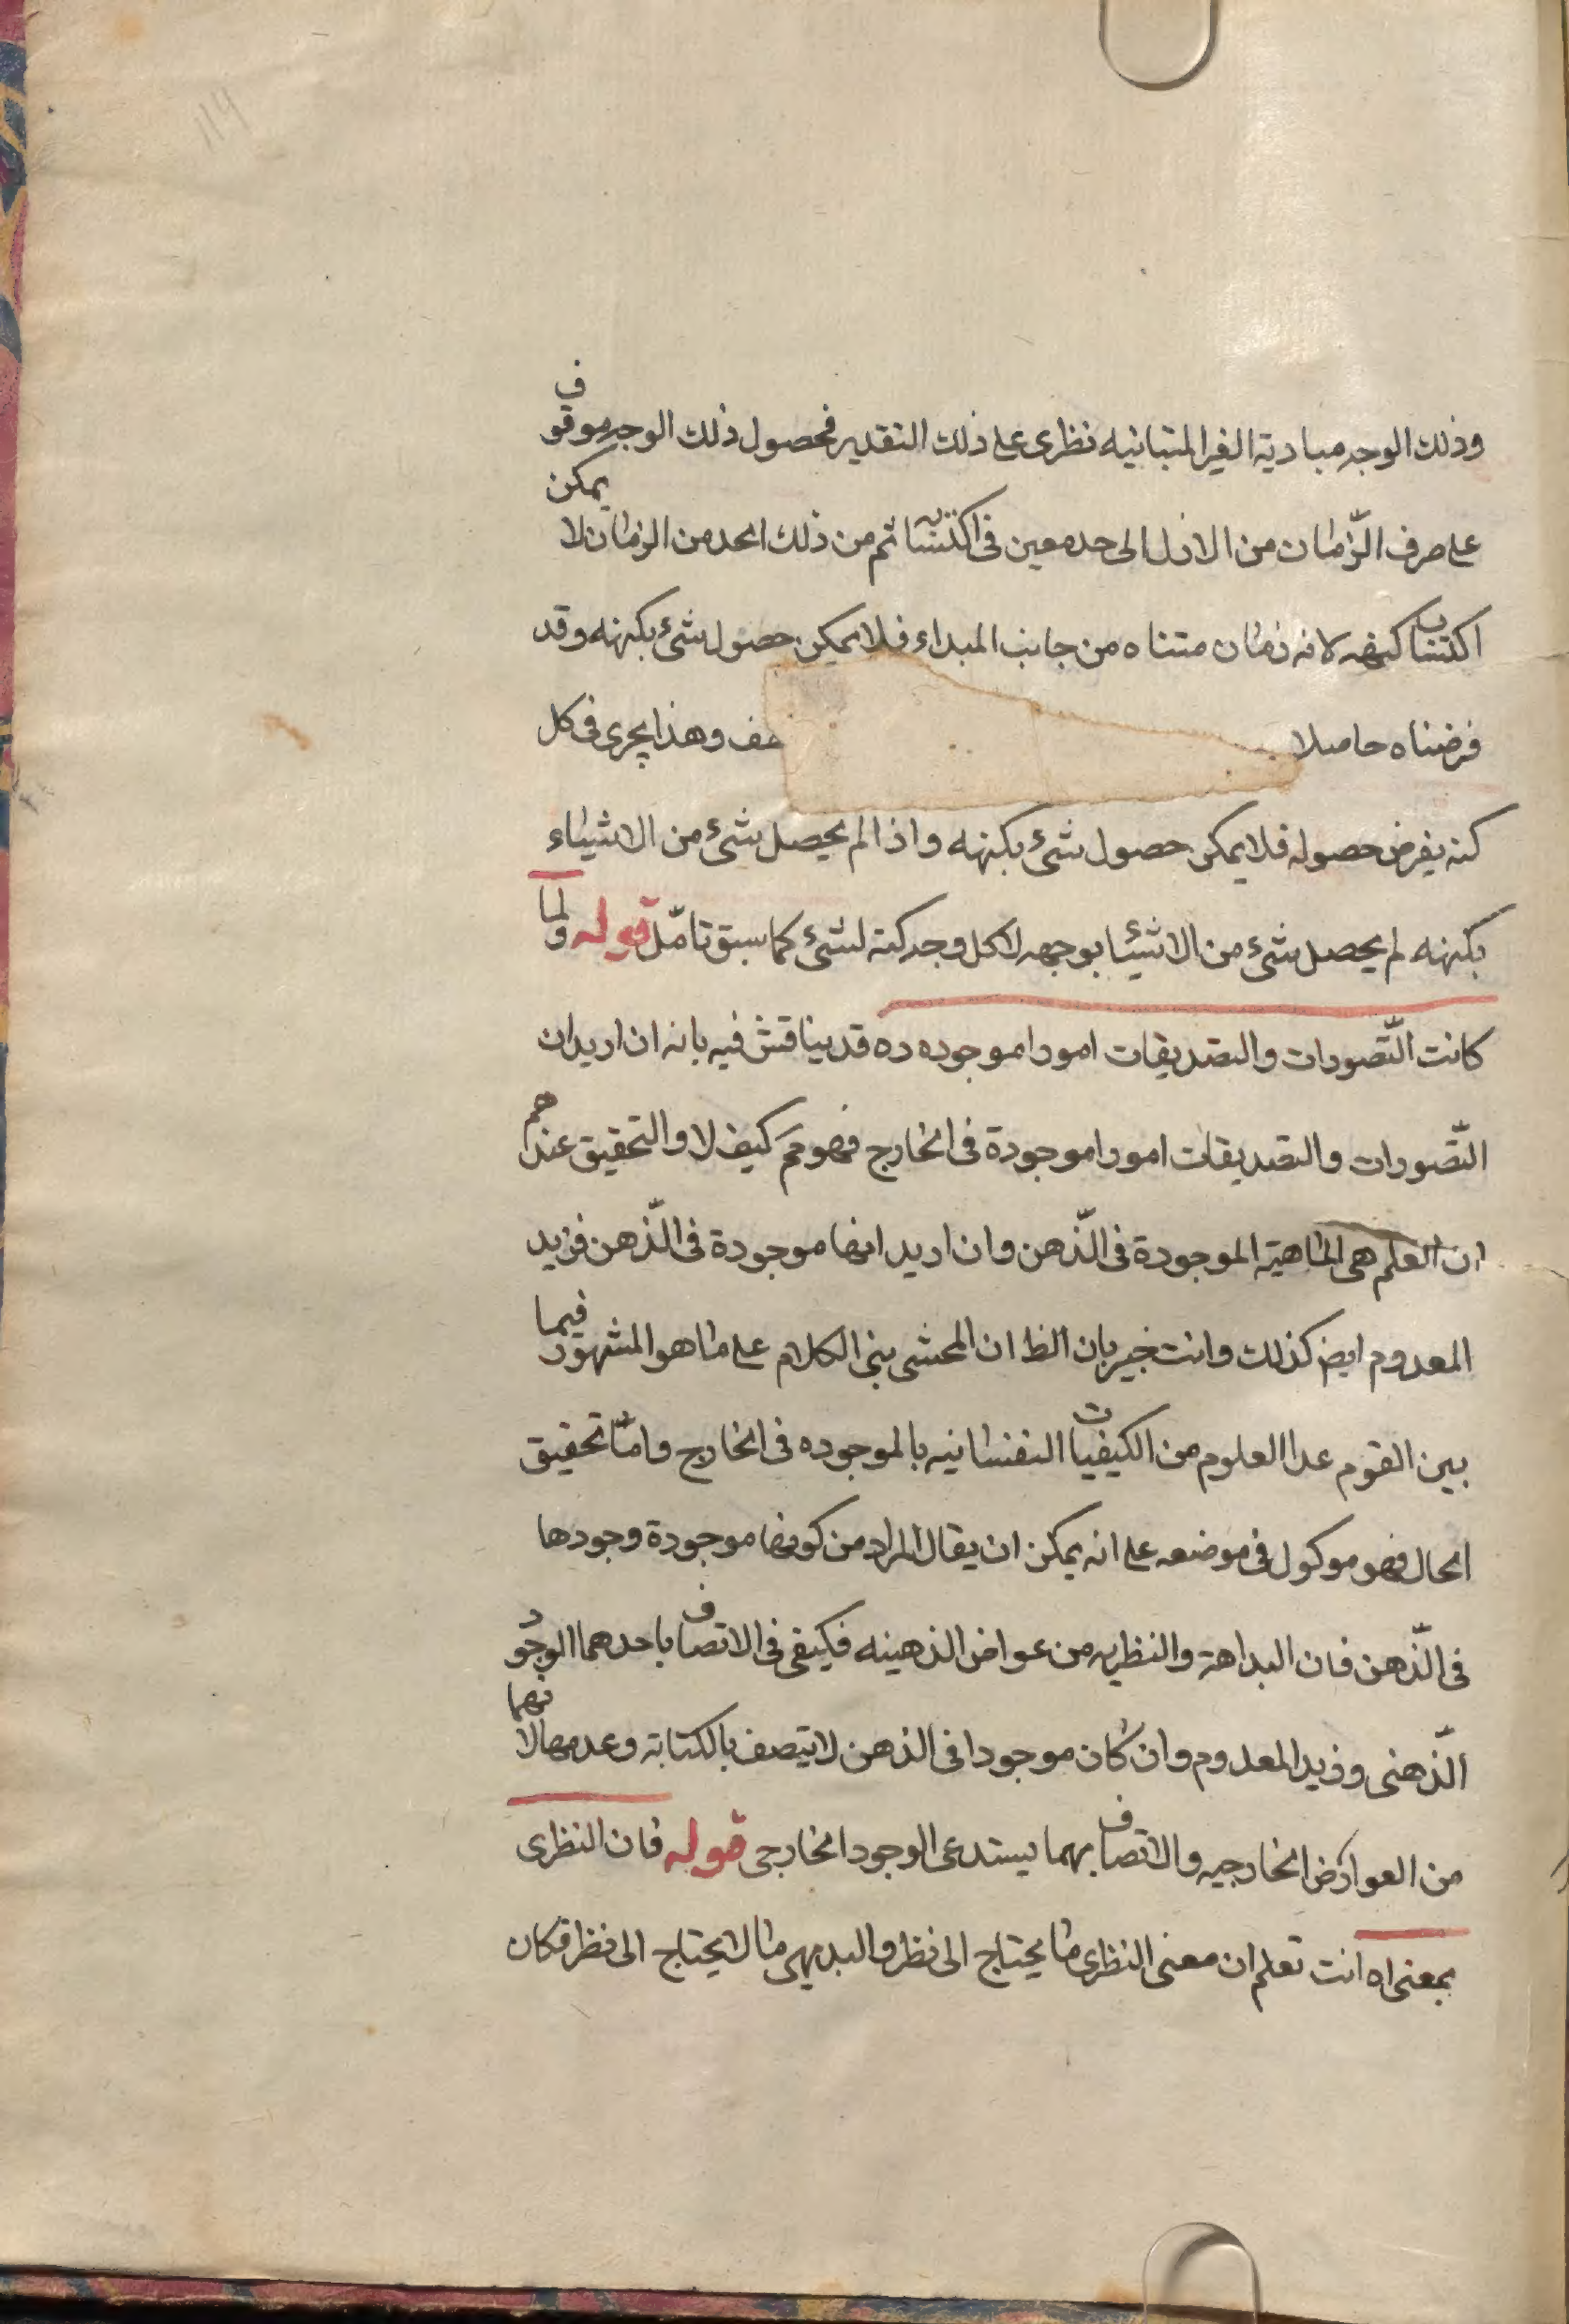 وذلك الوجه مباديه الغير المتناهيه نظرى على ذلك التقدير فحصول ذلك الوجه موقوف
على صرف الزّمان من الازل الى حد معين فى اكتسابه ثم من ذلك الحد من الزمان لا يمكن
اكتساب كنهه لانه زمان متناه من جانب المبداء فلا يمكن حصول شئ بكنهه وقد
فرضناه حاصلا هف وهذا يجرى فى كل
كنه يفرض حصوله فلا يمكن حصول شئ بكنهه واذا لم يحصل شئ من الاشياء
بكنهه لم يحصل شئ من الاشيئا بوجهه لا كل وجه كنه لشئ كما سبق تامّل قوله ولما
كانت التّصورات والتصديقات امورا موجوده ده قد يناقش فيه بانه ان اريد ان
التّصورات والتصديقات امورا موجودة فى الخارج فهو مم كيف لا والتحقيق عندهم
ان العلم هى الماهية الموجودة فى الذّهن وان اريد انها موجودة فى الذّهن فزيد
المعدوم ايض كذلك وانت خبير بان الظ ان المحشى بنى الكلام على ما هو المشهور فيما
بين القوم عدا العلوم من الكيفيات النفسانيه بالموجوده فى الخارج وامّا تحقيق
الحال فهو موكول فى موضعه على انه يمكن ان يقال المراد من كونها موجودة وجودها
فى الذّهن فان البداهة والنظريه من عوارض الذهنيه فيكفى فى الاتصاف باحدهما الوجود
الذّهنى وزيد المعدوم وان كان موجودا فى الذهن لا يتصف بالكتابة وعدمها لانهما
من العوارض الخارجيه والاتصاف بهما يستدعى الوجود الخارجى قوله فان النظرى
بمعنى اه انت تعلم ان معنى النظرى ما يحتاج الى نظر والبديهى ما لا يحتاج الى نظر فكان